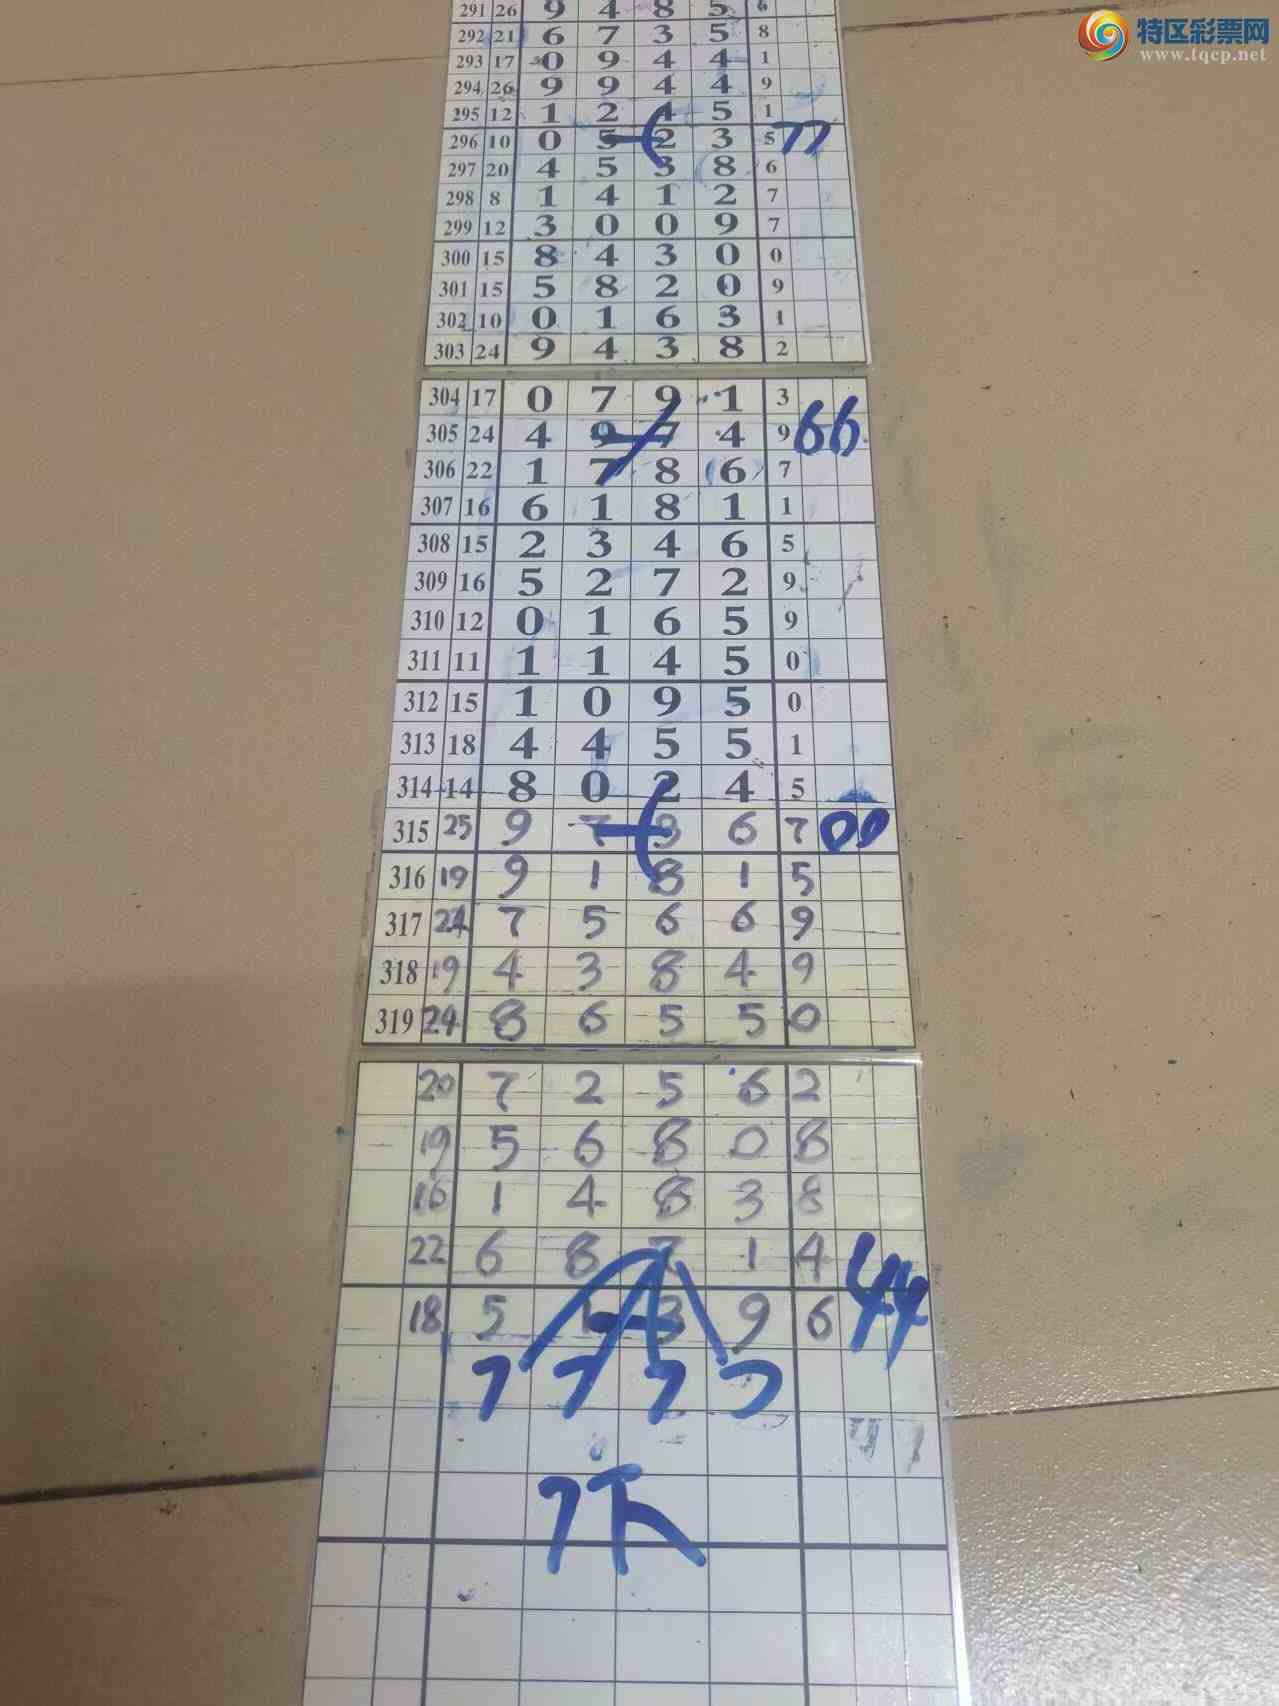 特区彩票网
www.tqcp.net
291 26 9 4 8 5 6
292 21 6 7 3 5 8
293 17 0 9 4 4 1
294 26 9 9 4 4 9
295 12 1 2 4 5 1
296 10 0 5 2 3 5 77
297 20 4 5 3 8 6
298 8 1 4 1 2 7
299 12 3 0 0 9 7
300 15 8 4 3 0 0
301 15 5 8 2 0 9
302 10 0 1 6 3 1
303 24 9 4 3 8 2
304 17 0 7 9 1 3
305 24 4 9 7 4 9 66
306 22 1 7 8 6 7
307 16 6 1 8 1 1
308 15 2 3 4 6 5
309 16 5 2 7 2 9
310 12 0 1 6 5 9
311 11 1 1 4 5 0
312 15 1 0 9 5 0
313 18 4 4 5 5 1
314 14 8 0 2 4 5
315 25 9 7 3 6 7 00
316 19 9 1 8 1 5
317 24 7 5 6 6 9
318 19 4 3 8 4 9
319 24 8 6 5 5 0
20 7 2 5 6 2
19 5 6 8 0 8
16 1 4 8 3 8
22 6 8 7 1 4 44
18 5 1 3 9 6
7 7 7 7
7下